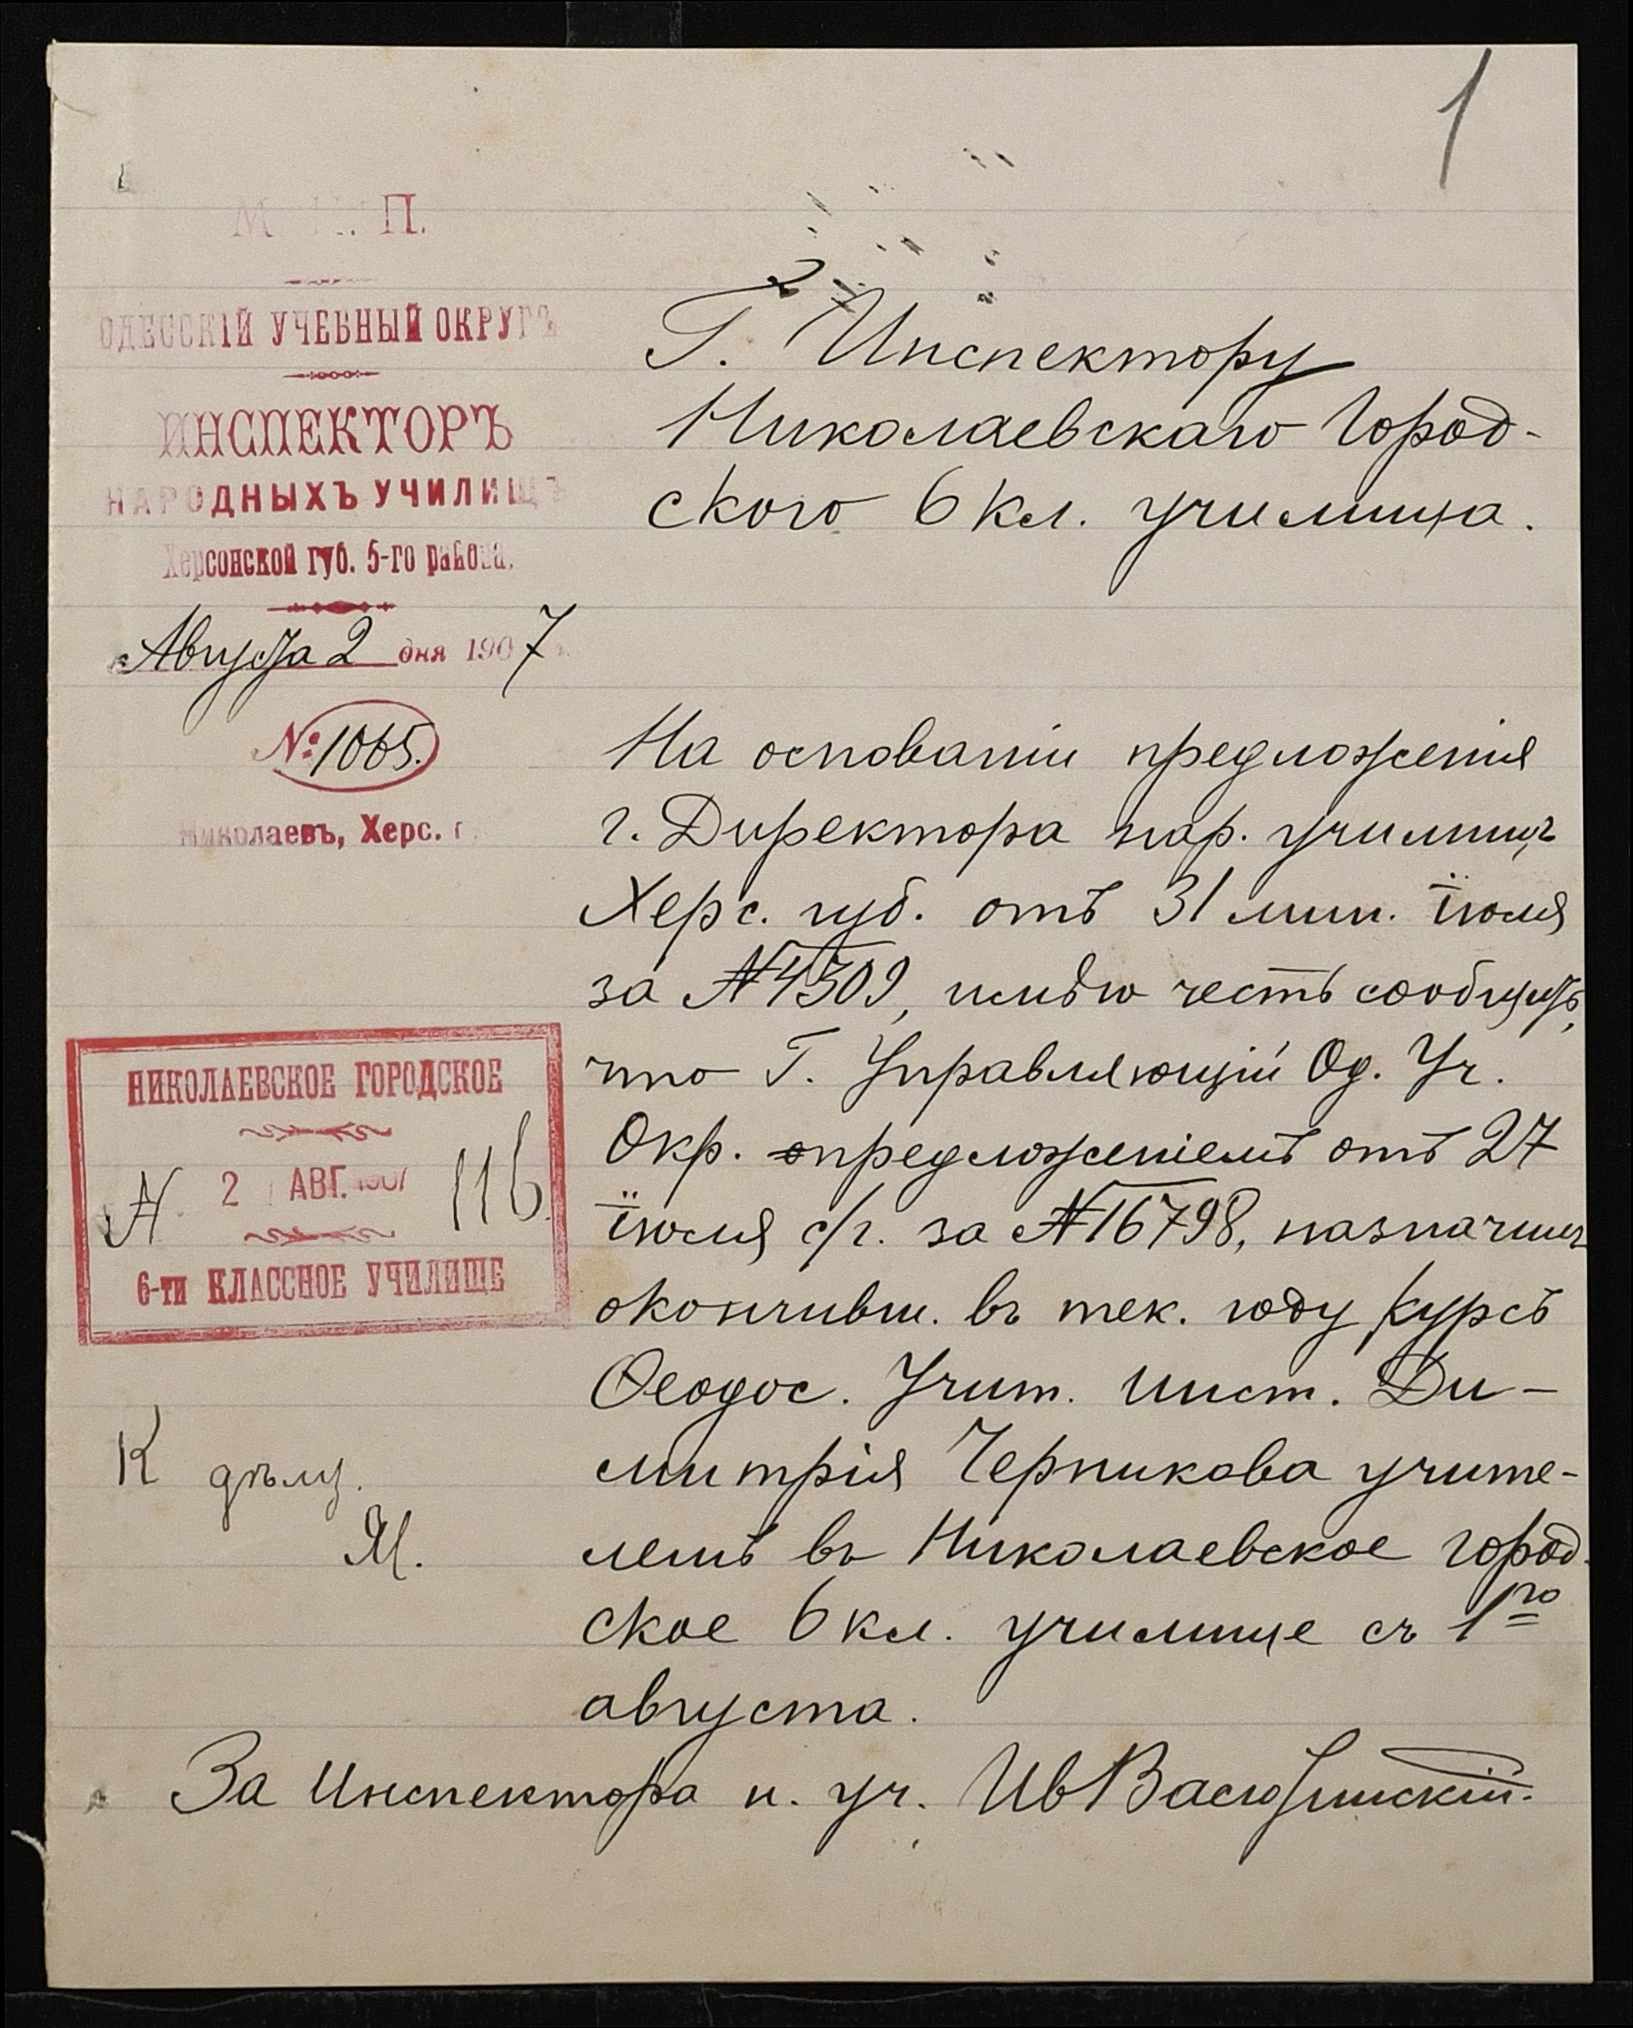 1
М. Н. П.
ОДЕССКІЙ УЧЕБНЫЙ ОКРУГЪ
ИНСПЕКТОРЪ
НАРОДНЫХЪ УЧИЛИЩЪ
Херсонской губ. 5-го района.
Августа 2 дня 1907
№ 1065.
Николаевъ, Херс. г.
Г. Инспектору
Николаевскаго Город-
ского 6 кл. училища.
На основаніи предложенія
г. Директора нар. училищъ
Херс. губ. отъ 31 мин. іюля
за № 4309, имѣю честь сообщить,
что Г. Управляющій Од. Уч.
Окр. предложеніемъ отъ 27
іюля с/г. за № 16798, назначилъ
окончивш. въ тек. году курсъ
Ѳеодос. Учит. Инст. Ди-
митрія Черникова учите-
лемъ въ Николаевское город-
ское 6 кл. училище съ 1го
августа.
За Инспектора н. уч. Ив
НИКОЛАЕВСКОЕ ГОРОДСКОЕ
№ 2 АВГ. 1907 116.
6-ти КЛАССНОЕ УЧИЛИЩЕ
К дѣлу.
М.